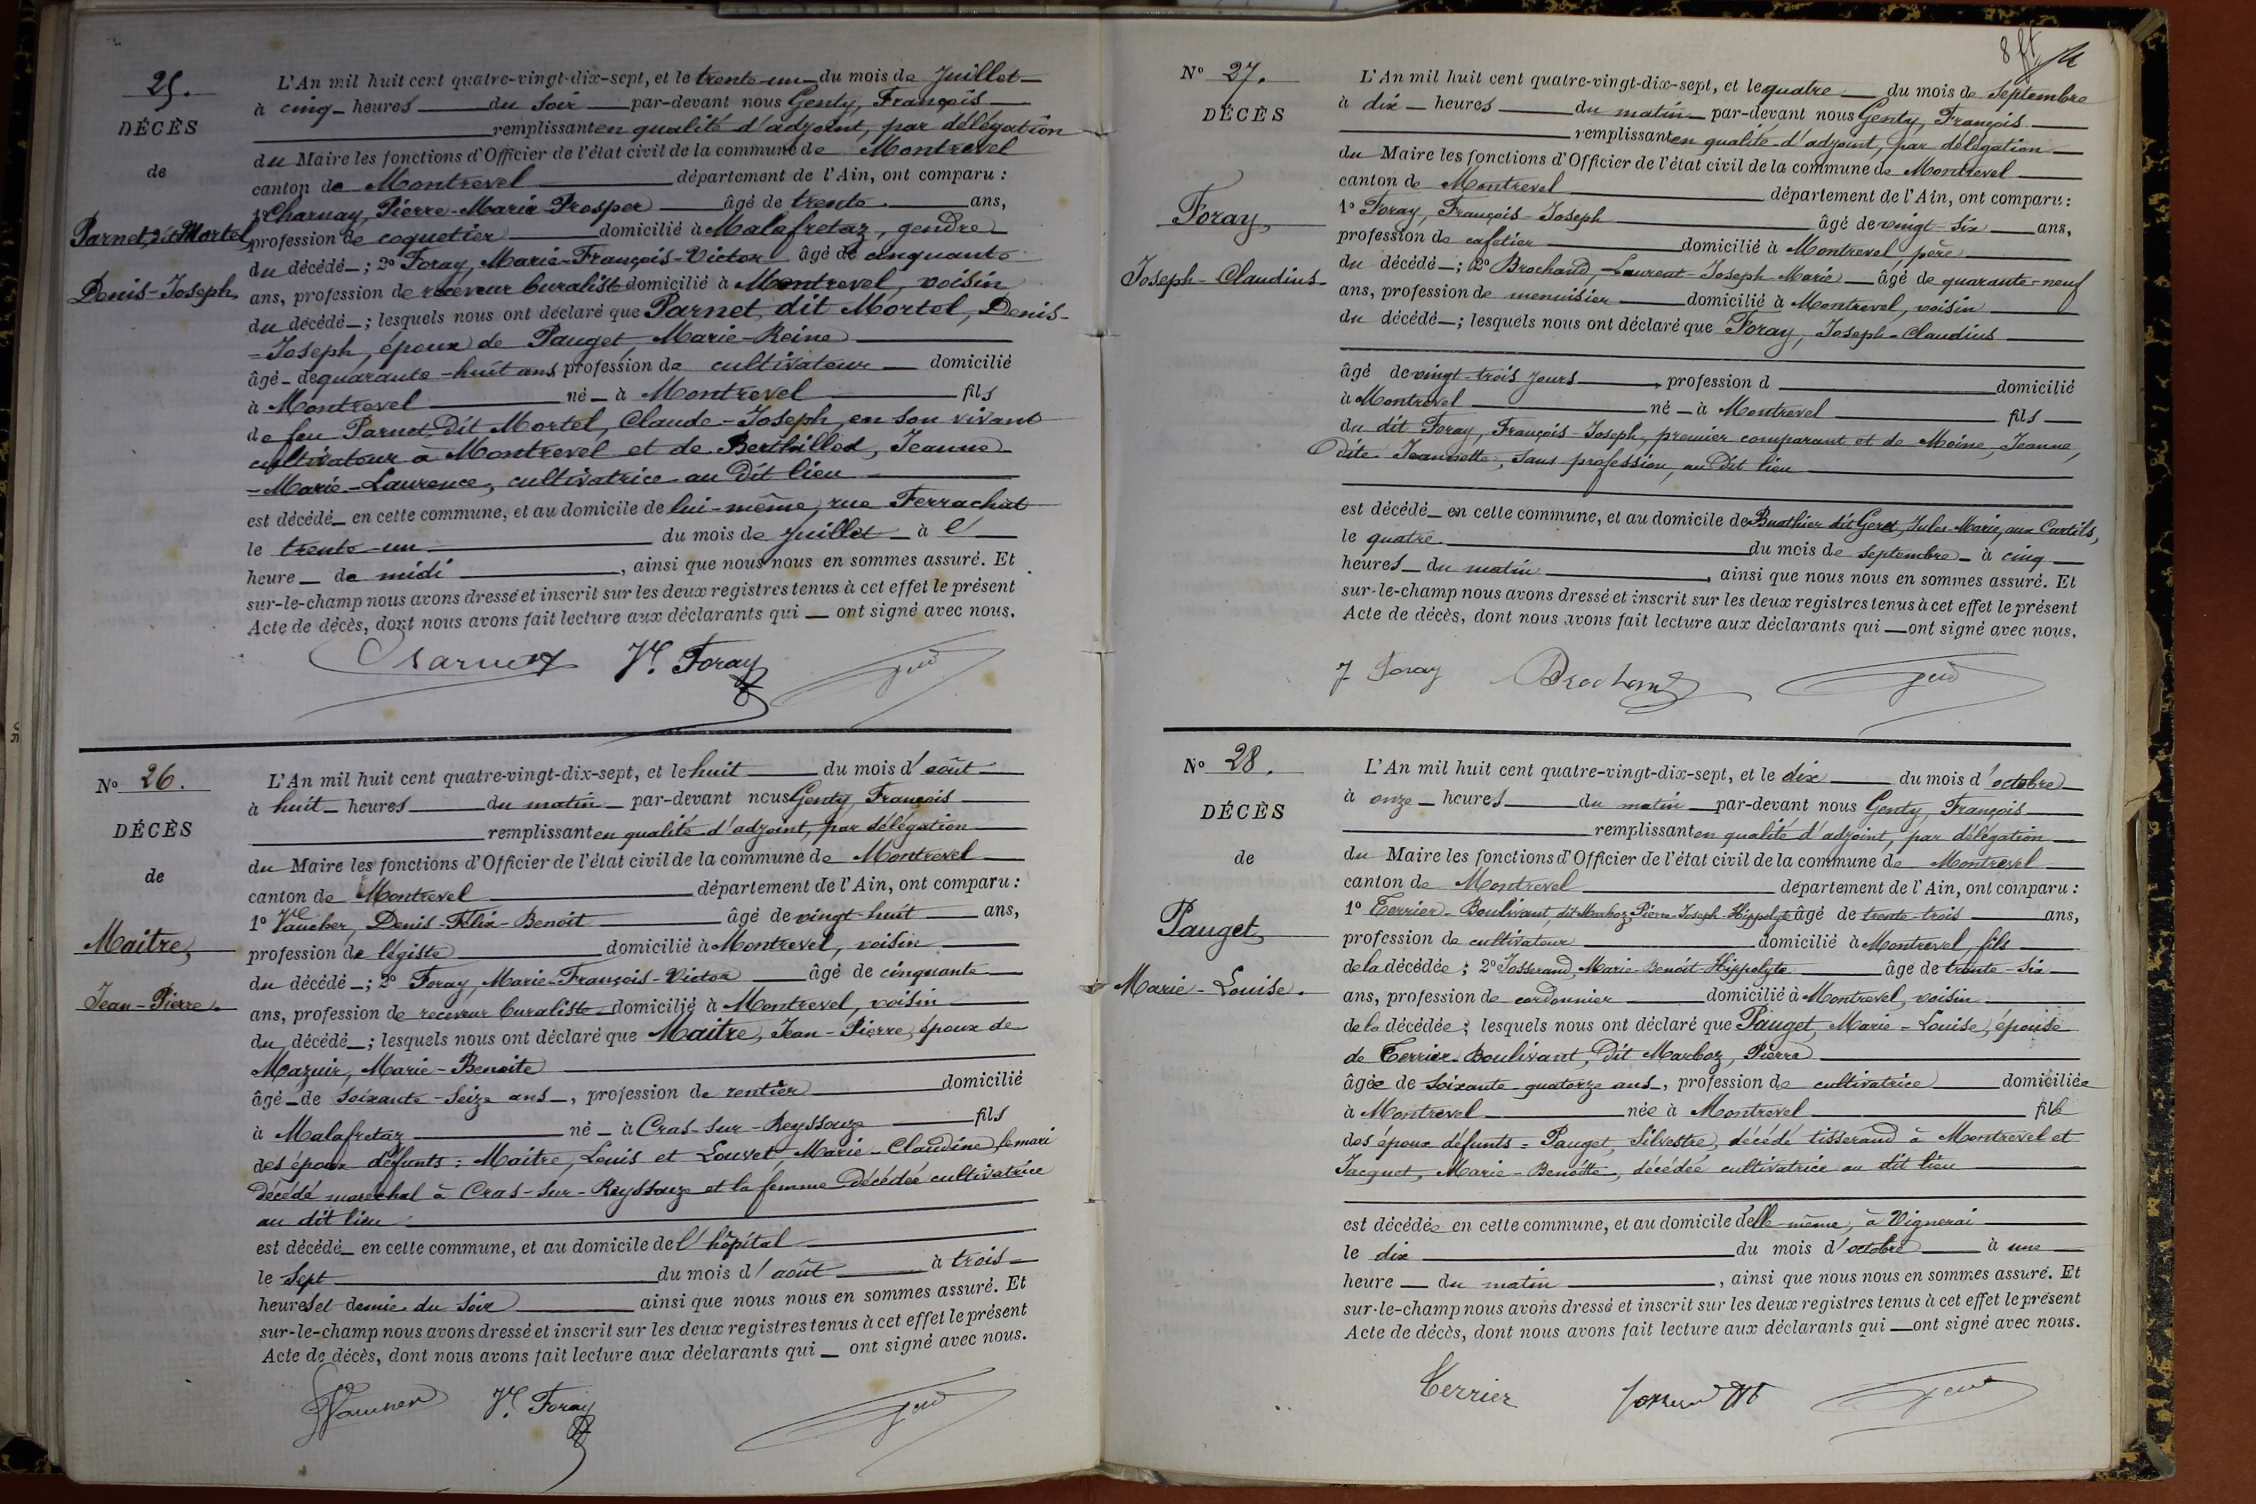 25.
DÉCÈS
de
Parnet, dit Mortel,
Denis-Joseph
L'An mil huit cent quatre-vingt-dix-sept, et le trente-un du mois de Juillet
à cinq heures du soir par-devant nous Genty, François
remplissant en qualité d'adjoint, par délégation
du Maire les fonctions d'Officier de l'état civil de la commune de Montrevel
canton de Montrevel département de l'Ain, ont comparu :
1° Charnay, Pierre-Marie-Prosper âgé de trente ans,
profession de coquetier domicilié à Malafretaz, gendre
du décédé ; 2° Foray, Marie-François-Victor âgé de cinquante
ans, profession de receveur buraliste domicilié à Montrevel, voisin
du décédé ; lesquels nous ont déclaré que Parnet, dit Mortel, Denis-
-Joseph, époux de Pauget, Marie-Reine
âgé de quarante-huit ans profession de cultivateur domicilié
à Montrevel né à Montrevel fils
de feu Parnet, dit Mortel, Claude-Joseph, en son vivant
cultivateur à Montrevel et de Berthillod, Jeanne
-Marie-Laurence, cultivatrice au dit lieu
est décédé en cette commune, et au domicile de lui-même, rue Ferrachat
le trente-un du mois de juillet à l'
heure de midi, ainsi que nous nous en sommes assuré. Et
sur-le-champ nous avons dressé et inscrit sur les deux registres tenus à cet effet le présent
Acte de décès, dont nous avons fait lecture aux déclarants qui ont signé avec nous.
Charnay Vr. Foray
N° 26.
DÉCÈS
de
Maitre,
Jean-Pierre.
L'An mil huit cent quatre-vingt-dix-sept, et le huit du mois d'août
à huit heures du matin par-devant nous Genty, François
remplissant en qualité d'adjoint, par délégation
du Maire les fonctions d'Officier de l'état civil de la commune de Montrevel
canton de Montrevel département de l'Ain, ont comparu :
1° Vaucher, Denis-Félix-Benoit âgé de vingt-huit ans,
profession de légiste domicilié à Montrevel, voisin
du décédé ; 2° Foray, Marie-François-Victor âgé de cinquante
ans, profession de receveur buraliste domicilié à Montrevel, voisin
du décédé ; lesquels nous ont déclaré que Maitre, Jean-Pierre, époux de
Mazuir, Marie-Benoite
âgé de soixante-seize ans, profession de rentier domicilié
à Malafretaz né à Cras-sur-Reyssouze fils
des époux défunts : Maitre, Louis et Louvet, Marie-Claudine, le mari
décédé marechal à Cras-sur-Reyssouze et la femme décédée cultivatrice
au dit lieu
est décédé en cette commune, et au domicile de l'hôpital
le sept du mois d'août à trois
heures et demie du soir ainsi que nous nous en sommes assuré. Et
sur-le-champ nous avons dressé et inscrit sur les deux registres tenus à cet effet le présent
Acte de décès, dont nous avons fait lecture aux déclarants qui ont signé avec nous.
Vaucher Vr. Foray
N° 27.
DÉCÈS
Foray,
Joseph-Claudius.
L'An mil huit cent quatre-vingt-dix-sept, et le quatre du mois de Septembre
à dix heures du matin par-devant nous Genty, François
remplissant en qualité d'adjoint, par délégation
du Maire les fonctions d'Officier de l'état civil de la commune de Montrevel
canton de Montrevel département de l'Ain, ont comparu :
1° Foray, François-Joseph âgé de vingt-six ans,
profession de cafetier domicilié à Montrevel, père
du décédé ; 2° Brochand, Laurent-Joseph-Marie âgé de quarante-neuf
ans, profession de menuisier domicilié à Montrevel, voisin
du décédé ; lesquels nous ont déclaré que Foray, Joseph-Claudius
âgé de vingt-trois jours, profession d domicilié
à Montrevel né à Montrevel fils
du dit Foray, François-Joseph, premier comparant et de Moine, Jeanne,
dite Jeannette, sans profession, au dit lieu
est décédé en cette commune, et au domicile de Buathier dit Geret, Jules-Marie, aux Curtils,
le quatre du mois de septembre à cinq
heures du matin, ainsi que nous nous en sommes assuré. Et
sur-le-champ nous avons dressé et inscrit sur les deux registres tenus à cet effet le présent
Acte de décès, dont nous avons fait lecture aux déclarants qui ont signé avec nous.
J Foray Brochand
N° 28.
DÉCÈS
de
Pauget,
Marie-Louise.
L'An mil huit cent quatre-vingt-dix-sept, et le dix du mois d'octobre
à onze heures du matin par-devant nous Genty, François
remplissant en qualité d'adjoint, par délégation
du Maire les fonctions d'Officier de l'état civil de la commune de Montrevel
canton de Montrevel département de l'Ain, ont comparu :
1° Terrier-Boulivant, dit Marboz, Pierre-Joseph-Hippolyte âgé de trente-trois ans,
profession de cultivateur domicilié à Montrevel, fils
de la décédée ; 2° Josserand, Marie-Benoit-Hippolyte âgé de trente-six
ans, profession de cordonnier domicilié à Montrevel, voisin
de la décédée ; lesquels nous ont déclaré que Pauget, Marie-Louise, épouse
de Terrier-Boulivant, dit Marboz, Pierre
âgée de soixante-quatorze ans, profession de cultivatrice domiciliée
à Montrevel née à Montrevel fille
des époux défunts : Pauget, Silvestre, décédé tisserand à Montrevel et
Jacquet, Marie-Benoitte, décédée cultivatrice au dit lieu
est décédée en cette commune, et au domicile d'elle-même, à Vignerai
le dix du mois d'octobre à une
heure du matin, ainsi que nous nous en sommes assuré. Et
sur-le-champ nous avons dressé et inscrit sur les deux registres tenus à cet effet le présent
Acte de décès, dont nous avons fait lecture aux déclarants qui ont signé avec nous.
Terrier